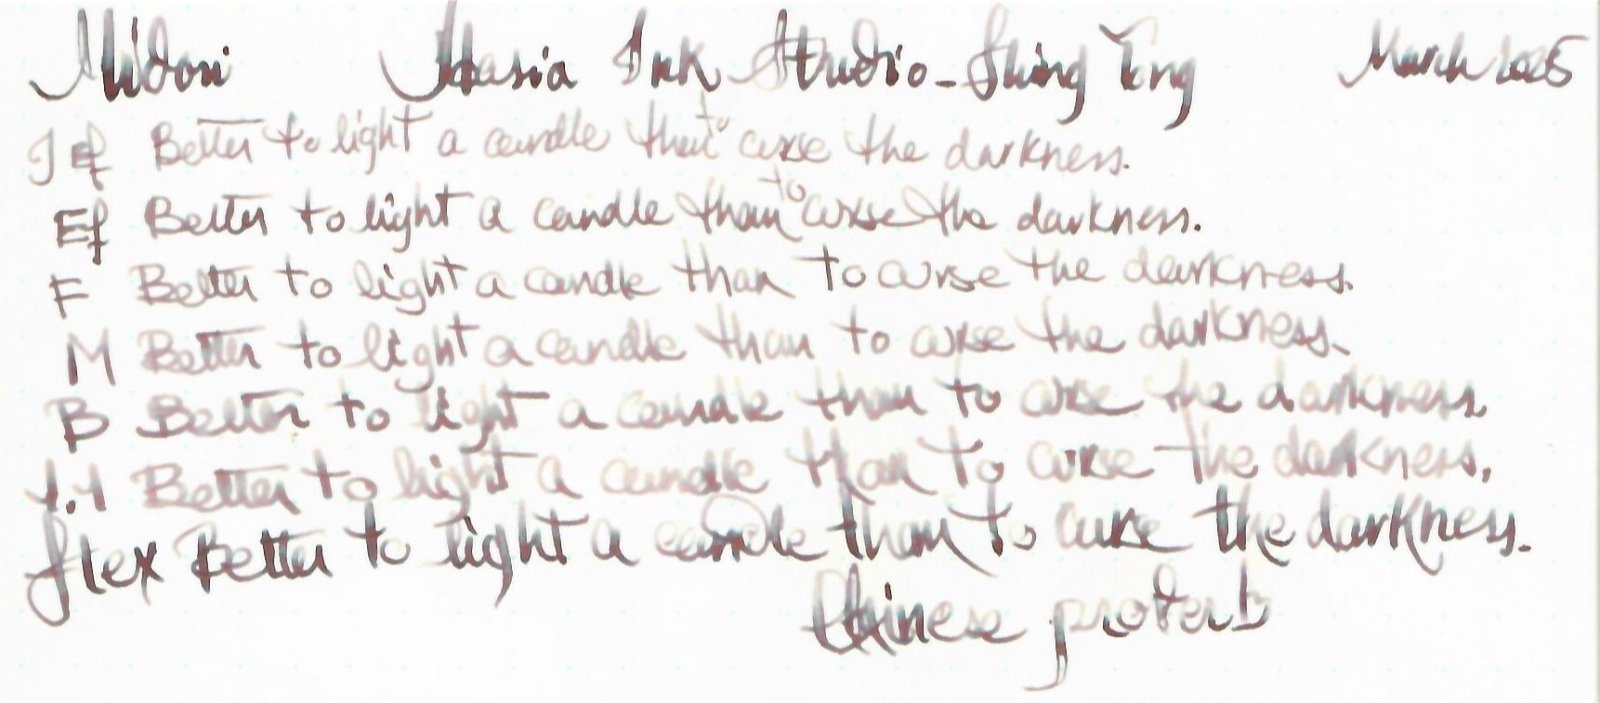 Midori Atasia Ink Studio - Shing Yang March 2025
J Ef Better to light a candle than to curse the darkness.
Ef Better to light a candle than to curse the darkness.
F Better to light a candle than to curse the darkness.
M Better to light a candle than to curse the darkness.
B Better to light a candle than to curse the darkness.
1.1 Better to light a candle than to curse the darkness.
flex Better to light a candle than to curse the darkness.
Chinese proverb